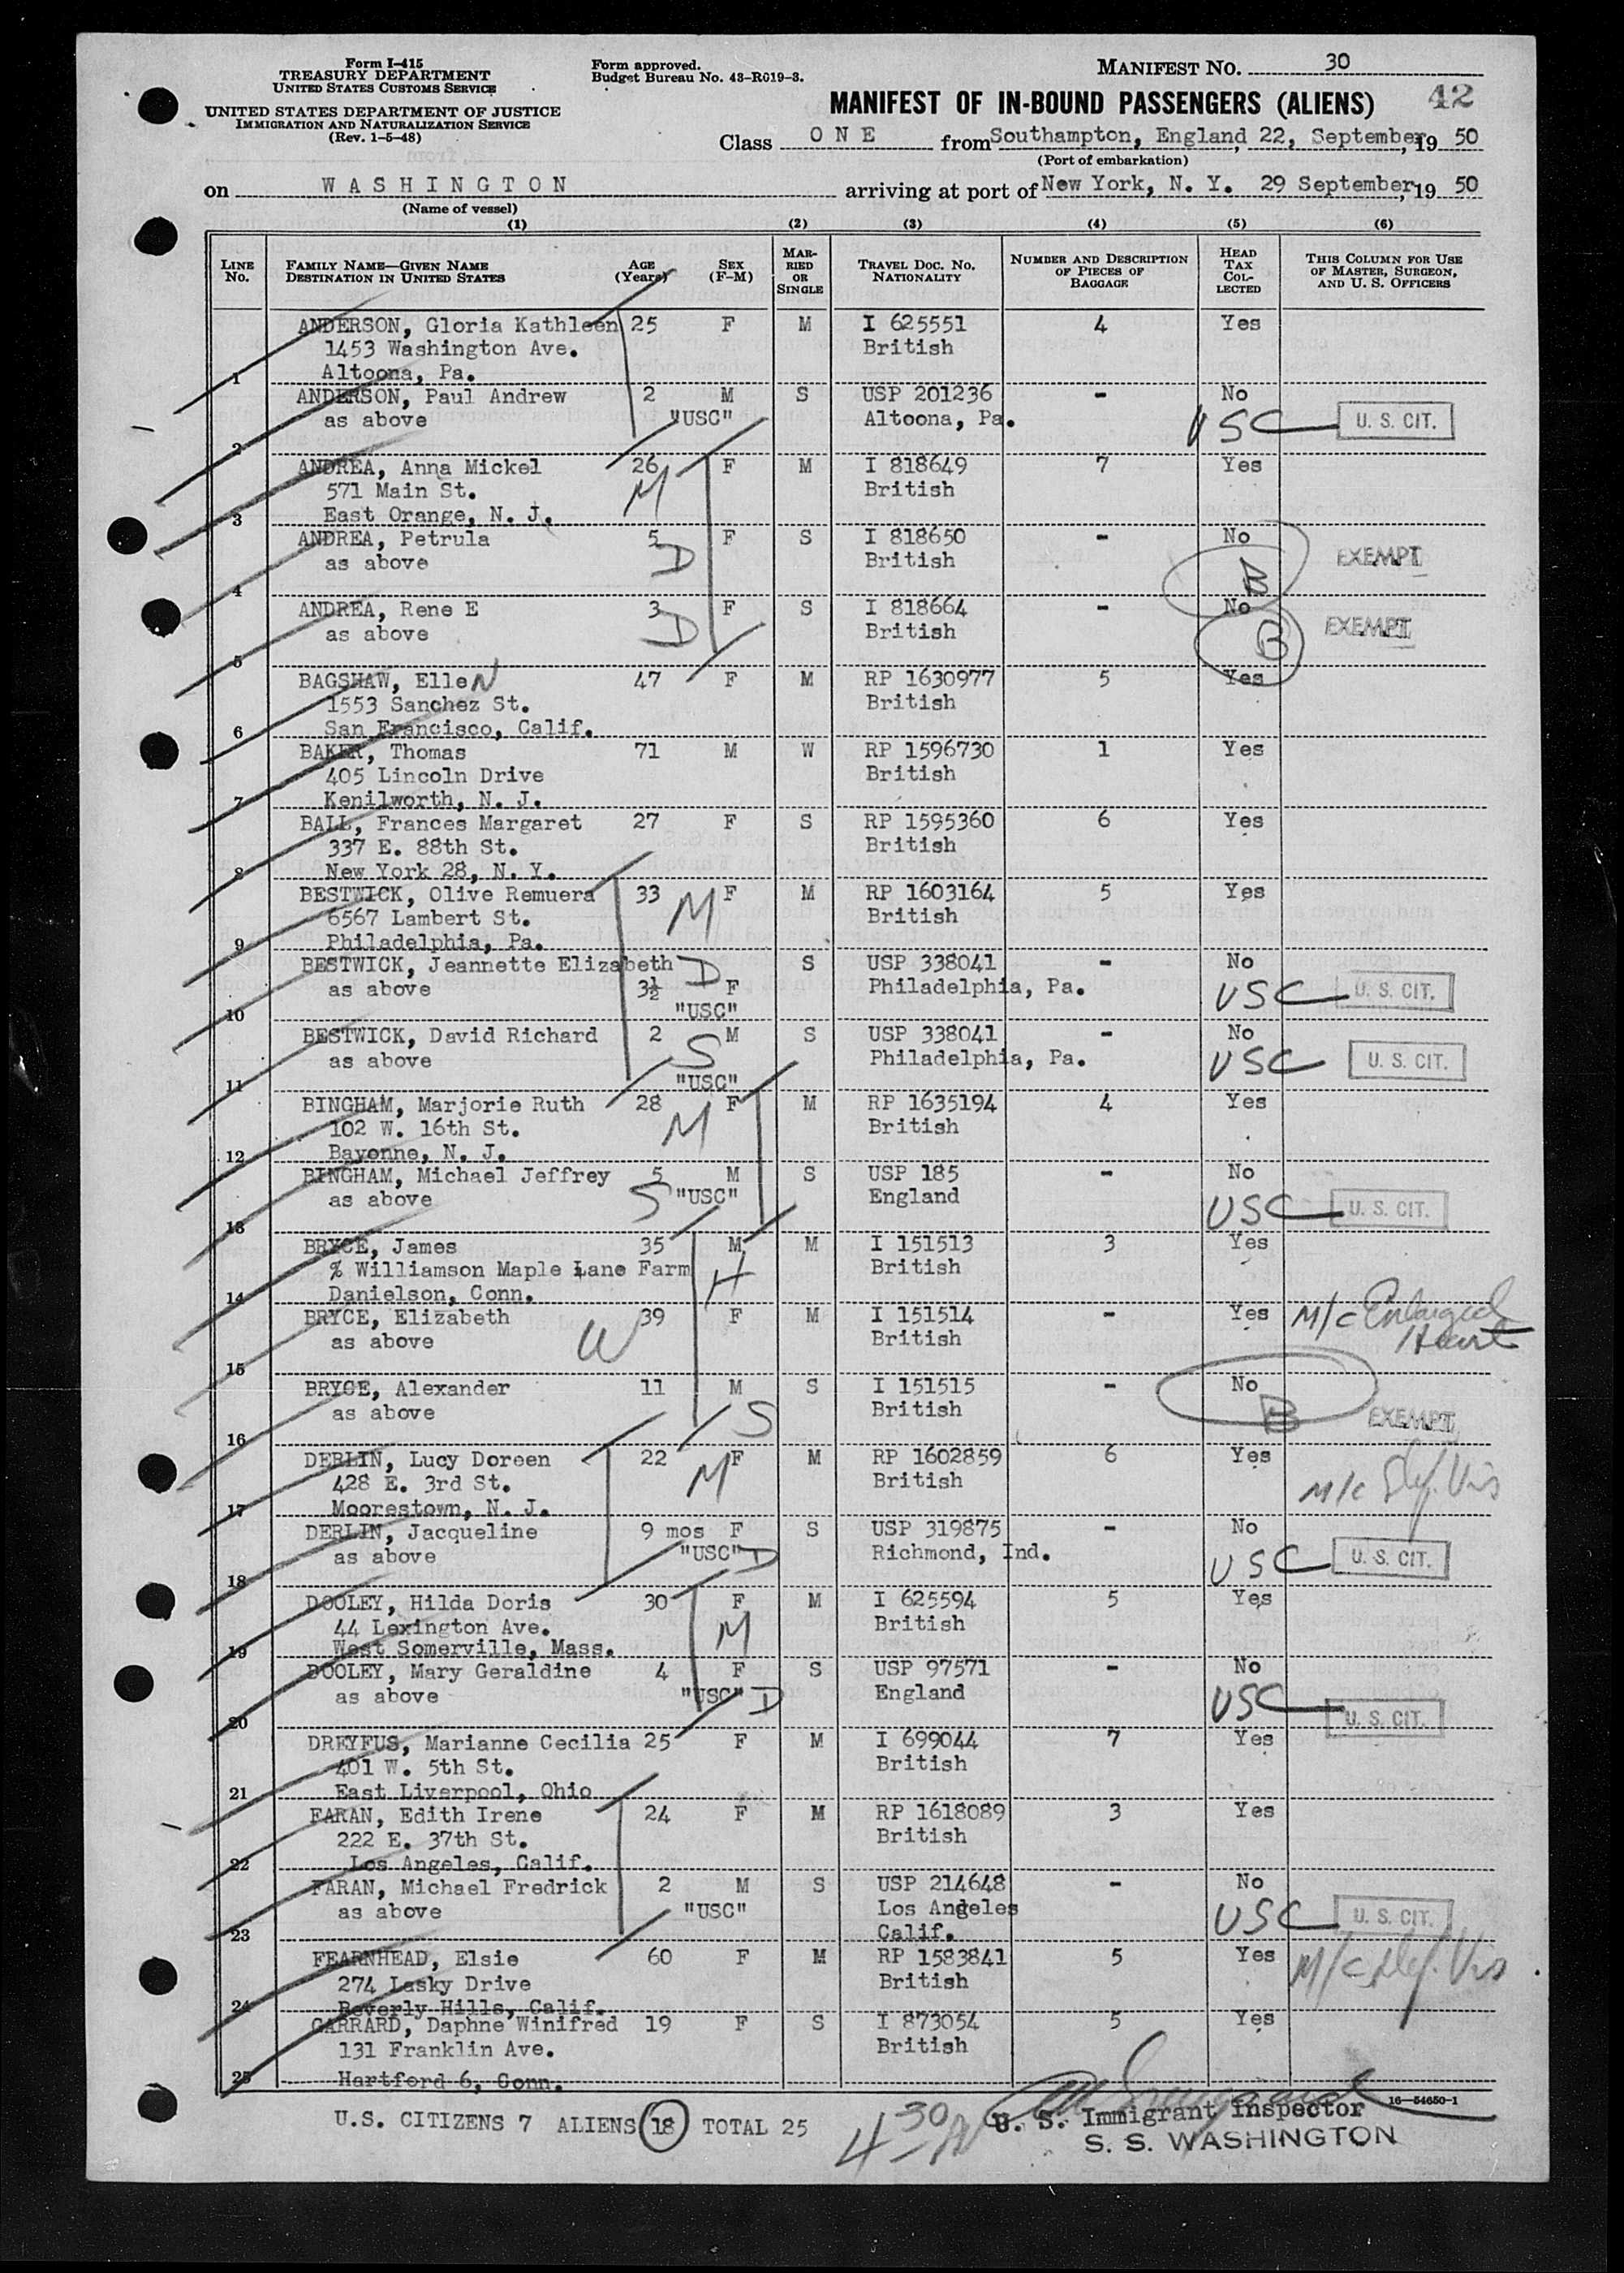 Form I-415
TREASURY DEPARTMENT
UNITED STATES CUSTOMS SERVICE
UNITED STATES DEPARTMENT OF JUSTICE
IMMIGRATION AND NATURALIZATION SERVICE
(Rev. 1-5-48)
Form approved.
Budget Bureau No. 43-R019-3.
MANIFEST NO. 30
MANIFEST OF IN-BOUND PASSENGERS (ALIENS) 42
Class O N E from Southampton, England, 22, September, 19 50
(Port of embarkation)
on W A S H I N G T O N arriving at port of New York, N. Y. 29 September, 19 50
(Name of vessel)
(1) (2) (3) (4) (5) (6)
LINE No. FAMILY NAME—GIVEN NAME DESTINATION IN UNITED STATES AGE (Years) SEX (F-M) MARRIED OR SINGLE TRAVEL DOC. NO. NATIONALITY NUMBER AND DESCRIPTION OF PIECES OF BAGGAGE HEAD TAX COLLECTED THIS COLUMN FOR USE OF MASTER, SURGEON, AND U. S. OFFICERS
ANDERSON, Gloria Kathleen 25 F M I 625551 4 Yes
1453 Washington Ave. British
1 Altoona, Pa.
ANDERSON, Paul Andrew 2 M S USP 201236 - No
as above "USC" Altoona, Pa. USC U. S. CIT.
2
ANDREA, Anna Mickel 26 F M I 818649 7 Yes
571 Main St. M British
3 East Orange, N. J.
ANDREA, Petrula 5 F S I 818650 - No
as above D British B EXEMPT
4
ANDREA, Rene E 3 F S I 818664 - No
as above D British B EXEMPT
5
BAGSHAW, Ellen 47 F M RP 1630977 5 Yes
1553 Sanchez St. British
6 San Francisco, Calif.
BAKER, Thomas 71 M W RP 1596730 1 Yes
405 Lincoln Drive British
7 Kenilworth, N. J.
BALL, Frances Margaret 27 F S RP 1595360 6 Yes
337 E. 88th St. British
8 New York 28, N. Y.
BESTWICK, Olive Remuera 33 M F M RP 1603164 5 Yes
6567 Lambert St. British
9 Philadelphia, Pa.
BESTWICK, Jeannette Elizabeth D S USP 338041 - No
as above 3½ F Philadelphia, Pa. USC U. S. CIT.
10 "USC"
BESTWICK, David Richard 2 M S USP 338041 - No
as above S Philadelphia, Pa. USC U. S. CIT.
11 "USC"
BINGHAM, Marjorie Ruth 28 F M RP 1635194 4 Yes
102 W. 16th St. M British
12 Bayonne, N. J.
BINGHAM, Michael Jeffrey 5 M S USP 185 - No
as above S "USC" England USC U. S. CIT.
13
BRYCE, James 35 M M I 151513 3 Yes
% Williamson Maple Lane Farm H British
14 Danielson, Conn.
BRYCE, Elizabeth 39 F M I 151514 - Yes M/c Enlarged
as above W British Heart
15
BRYCE, Alexander 11 M S I 151515 - No
as above S British B EXEMPT
16
DERLIN, Lucy Doreen 22 F M RP 1602859 6 Yes
428 E. 3rd St. M British M/c Def. Vis
17 Moorestown, N. J.
DERLIN, Jacqueline 9 mos F S USP 319875 - No
as above "USC" D Richmond, Ind. USC U. S. CIT.
18
DOOLEY, Hilda Doris 30 F M I 625594 5 Yes
44 Lexington Ave. M British
19 West Somerville, Mass.
DOOLEY, Mary Geraldine 4 F S USP 97571 - No
as above "USC" D England USC U. S. CIT.
20
DREYFUS, Marianne Cecilia 25 F M I 699044 7 Yes
401 W. 5th St. British
21 East Liverpool, Ohio
FARAN, Edith Irene 24 F M RP 1618089 3 Yes
222 E. 37th St. British
22 Los Angeles, Calif.
FARAN, Michael Fredrick 2 M S USP 214648 - No
as above "USC" Los Angeles USC U. S. CIT.
23 Calif.
FEARNHEAD, Elsie 60 F M RP 1583841 5 Yes M/c Def. Vis
274 Lasky Drive British
24 Beverly Hills, Calif.
GARRARD, Daphne Winifred 19 F S I 873054 5 Yes
131 Franklin Ave. British
25 Hartford 6, Conn.
16—54650-1
U.S. CITIZENS 7 ALIENS 18 TOTAL 25 4 30 U. S. Immigrant Inspector
S. S. WASHINGTON